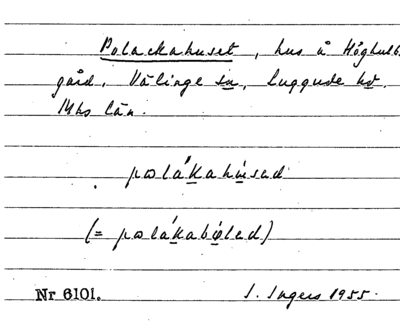 Polackahuset, hus å Höghult
gård, Välinge sn, Luggude hd.
Mhs län.
pɷlákahúsad
(= pɷlákabǿlad)
Nr 6101. I. Ingers 1955.